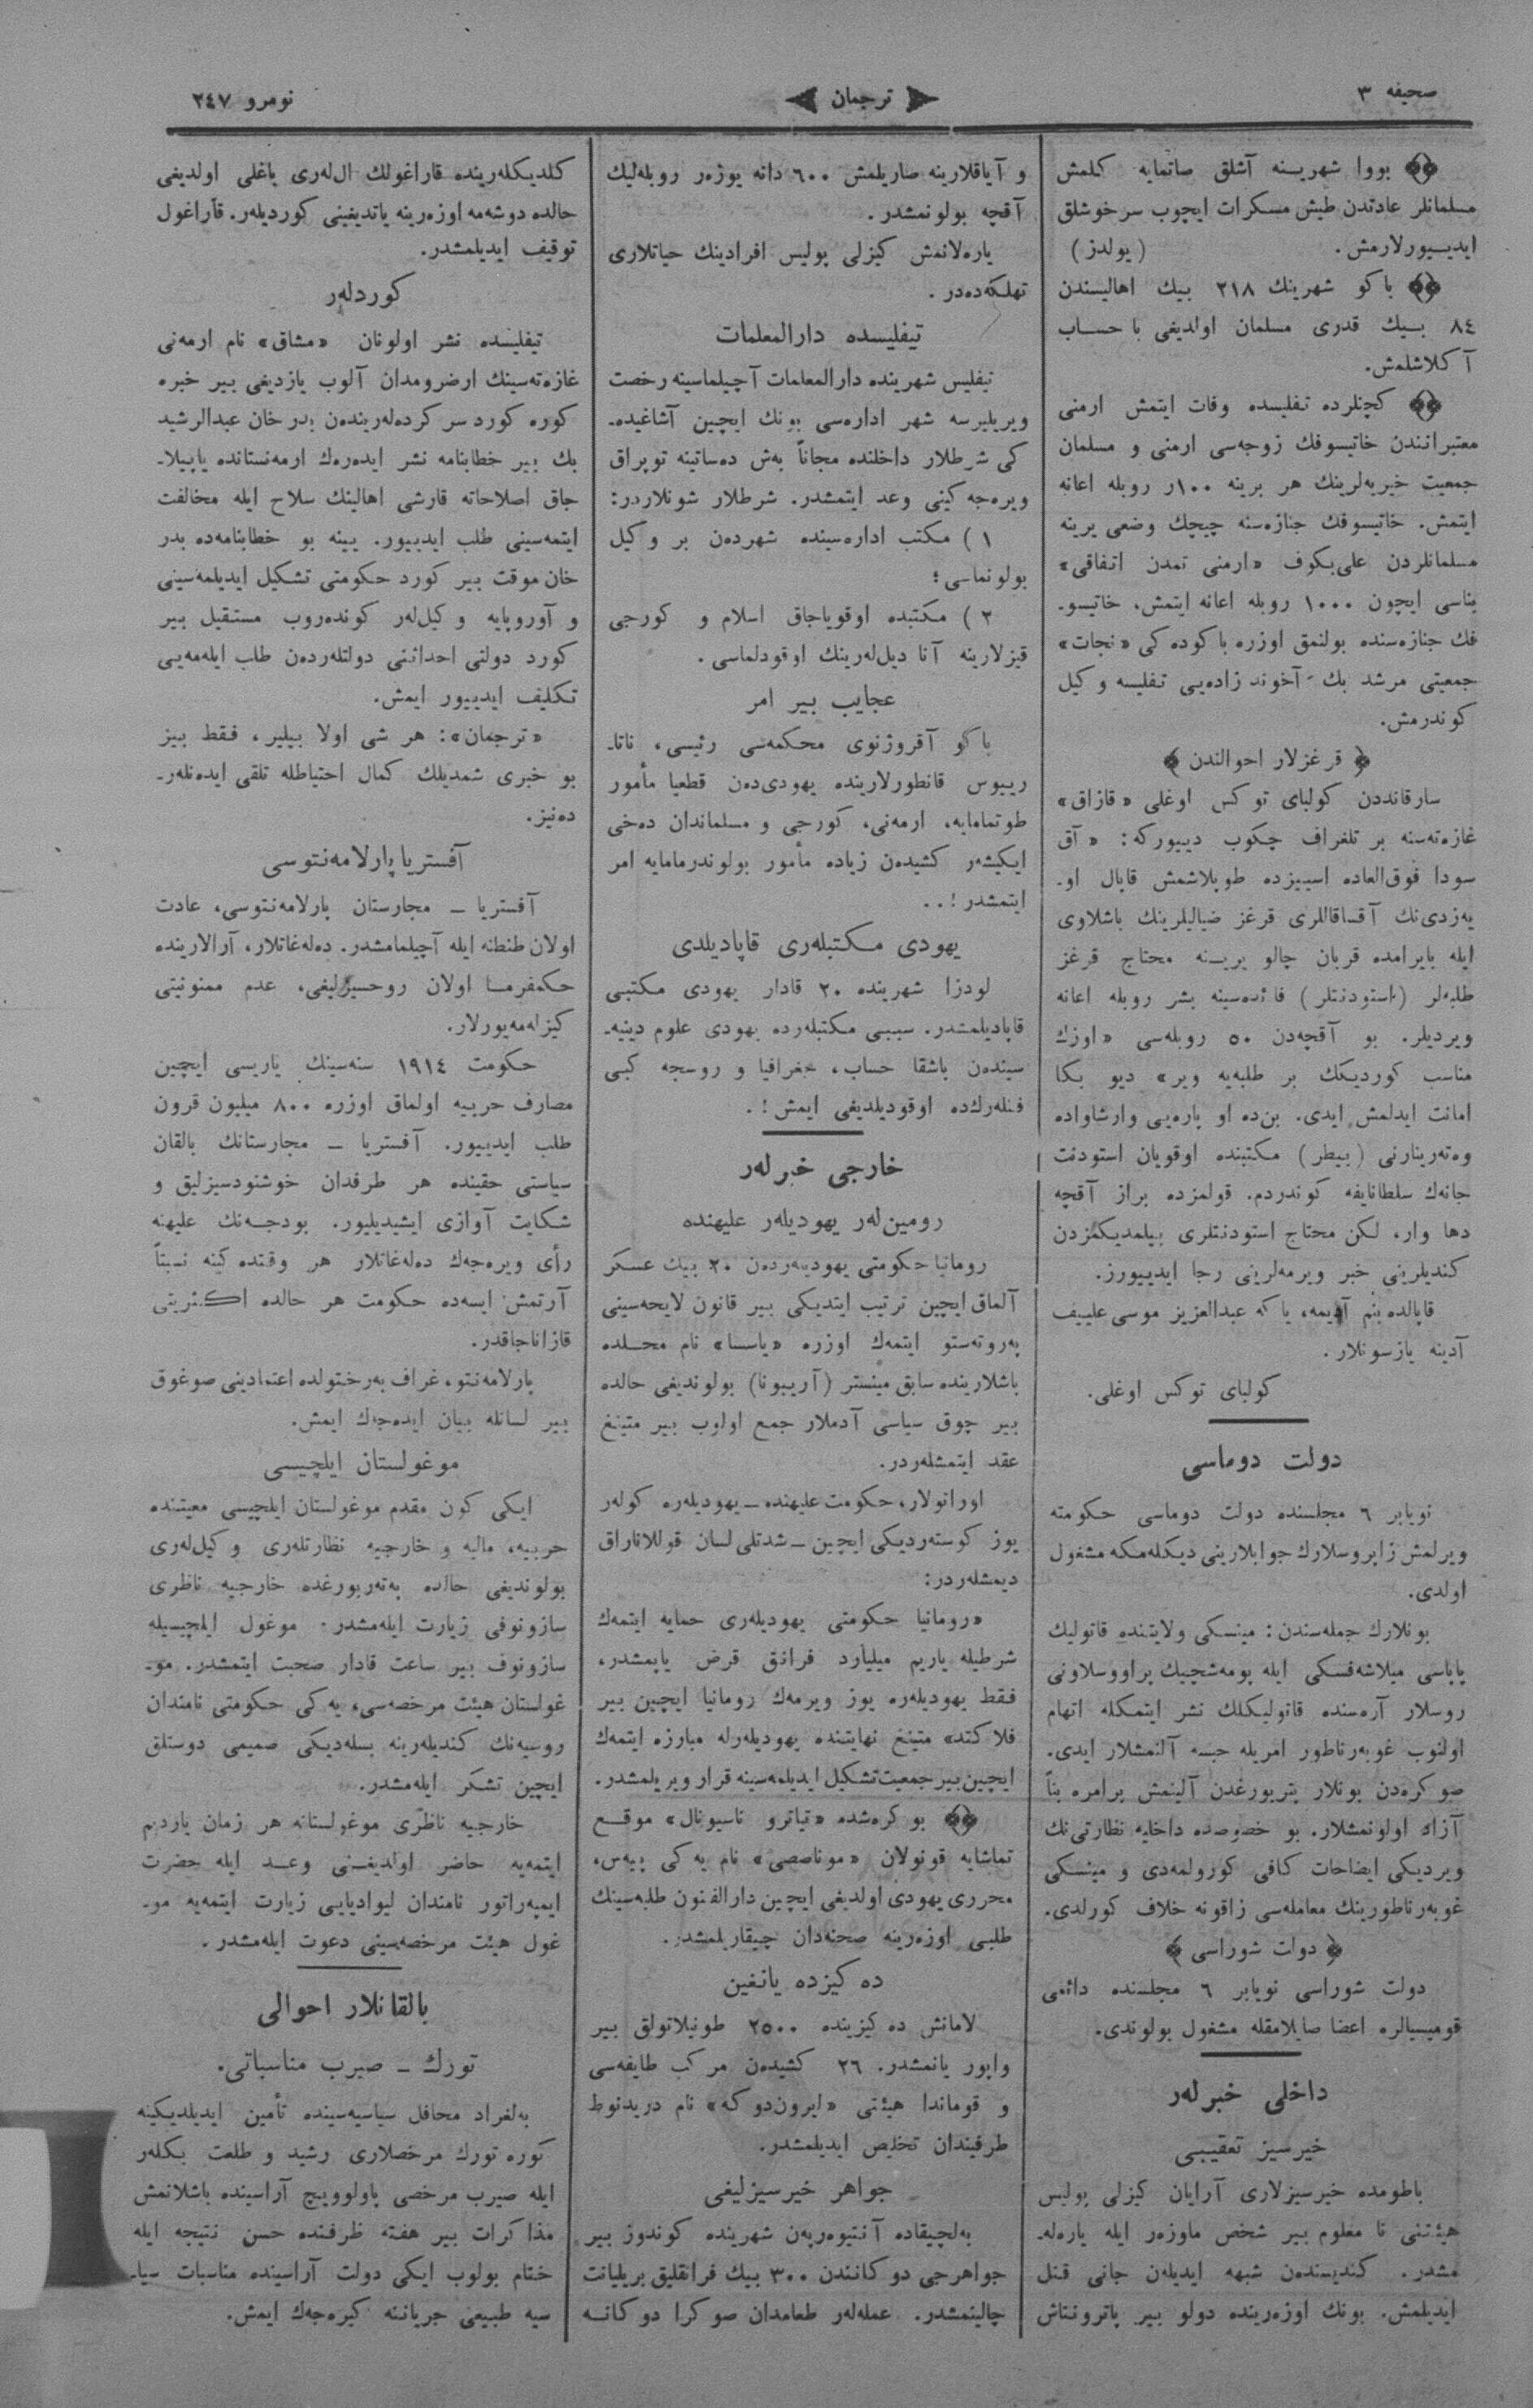 صحيفه ٣
ترجمان
نومرو ٢٤٧
بووا شهرينه آشلق صاتمايه كلمش
مسلمانلر عادتدن طيش مسكرات ايچوب سرخوشلق
ايدييورلارمش. (يولدز)
باكو شهرينك ٢١٨ بيك اهاليسندن
٨٤ بيك قدرى مسلمان اولديغى با حساب
آكلاشلمش.
كچنلرده تفليسده وفات ايتمش ارمنى
معتبرانندن خاتيسوفك زوجه‌سى ارمنى و مسلمان
جمعيت خيريه‌لرينك هر برينه ١٠٠ر روبله اعانه
ايتمش. خاتيسوفك جنازه‌سنه چيچك وضعى يرينه
مسلمانلردن على‌بكوف «ارمنى تمدن اتفاقى»
بناسى ايچون ١٠٠٠ روبله اعانه ايتمش، خاتيسو-
فك جنازه‌سنده بولنمق اوزره باكوده كى «نجات»
جمعيتى مرشد بك آخوند زاده‌يى تفليسه وكيل
كوندرمش.
﴿ قرغزلار احوالندن ﴾
سارقانددن كولباى توكس اوغلى «قازاق»
غازه‌ته‌سنه بر تلغراف چكوب دييوركه: «آق
سودا فوق‌العاده اسييزده طوپلاشمش قاپال او-
يه‌زدى‌نك آقساقاللرى قرغز ضيالیلرينك باشلاوى
ايله بايرامده قربان چالو يرينه محتاج قرغز
طلبه‌لر (استودنتلر) فائده‌سينه بشر روبله اعانه
ويرديلر. بو آقچه‌دن ٥٠ روبله‌سى «اوزك
مناسب كورديكك بر طلبه‌يه وير» ديو بكا
امانت ايدلمش ايدى. بن‌ده او پاره‌يى وارشاواده
وه‌ته‌رينارنى (بيطر) مكتبنده اوقويان استودنت
جانه‌ك سلطانايفه كوندردم. قولمزده براز آقچه
دها وار، لكن محتاج استودنتلرى بيلمديكمزدن
كنديلرينى خبر ويرمه‌لرينى رجا ايدييورز.
قاپالده بنم آديمه، ياكه عبدالعزيز موسى علييف
آدينه يازسونلار.
كولباى توكس اوغلى.
دولت دوماسى
نويابر ٦ مجلسنده دولت دوماسى حكومته
ويرلمش زاپروسلارك جوابلارينى ديكله‌مكه مشغول
اولدى.
بونلارك جمله‌سندن: مينسكى ولايتنده قاتوليك
پاپاسى ميلاشه‌فسكى ايله پومه‌شچيك پراووسلاونى
روسلار آره‌سنده قاتوليكلك نشر ايتمكله اتهام
اولنوب غوبه‌رناطور امريله حبسه آلنمشلار ايدى.
صوكره‌دن بونلار پتربورغدن آلينمش برامره بناً
آزاد اولونمشلار. بو خصوصده داخليه نظارتى‌نك
ويرديكى ايضاحات كافى كورولمه‌دى و مينسكى
غوبه‌رناطورينك معامله‌سى زاقونه خلاف كورلدى.
﴿ دولت شوراسى ﴾
دولت شوراسى نويابر ٦ مجلسنده دائمى
قوميسيالره اعضا صايلامقله مشغول بولوندى.
داخلى خبرله‌ر
خيرسيز تعقيبى
باطومده خيرسيزلارى آرايان كيزلى پوليس
هيئتنى نا معلوم بير شخص ماوزه‌ر ايله ياره‌له-
مشدر. كنديسندن شبهه ايديلن جانى قتل
ايديلمش. بونك اوزه‌رينده دولو بير پاترونتاش
و آياقلارينه صاريلمش ٦٠٠ دانه يوزه‌ر روبله‌ليك
آقچه بولونمشدر.
ياره‌لانمش كيزلى پوليس افرادينك حياتلارى
تهلكه‌ده‌در.
تيفليسده دارالمعلمات
تيفليس شهرينده دارالمعلمات آچيلماسينه رخصت
ويريليرسه شهر اداره‌سى بونك ايچين آشاغيده-
كى شرطلار داخلنده مجاناً به‌ش ده‌ساتينه توپراق
ويره‌جه‌كينى وعد ايتمشدر. شرطلار شونلاردر:
١) مكتب اداره‌سينده شهردن بر وكيل
بولونماسى؛
٢) مكتبده اوقوياجاق اسلام و كورجى
قيزلارينه آنا ديل‌له‌رينك اوقودلماسى.
عجايب بير امر
باكو آقروژنوى محكمه‌سى رئيسى، ناتا-
ريبوس قانطورلارينده يهودى‌دن قطعيا مأمور
طوتمامايه، ارمه‌نى، كورجى و مسلماندان ده‌خى
ايكيشه‌ر كشيدن زياده مأمور بولوندرمامايه امر
ايتمشدر!..
يهودى مكتبله‌رى قاپاديلدى
لودزا شهرينده ٢٠ قادار يهودى مكتبى
قاپاديلمشدر. سببى مكتبله‌رده يهودى علوم دينيه-
سيندن باشقا حساب، جغرافيا و روسجه كبى
فنله‌رك‌ده اوقوديلديغى ايمش!.
خارجى خبرله‌ر
رومين‌له‌ر يهوديله‌ر عليهنده
رومانيا حكومتى يهوديله‌ردن ٢٠ بيك عسكر
آلماق ايچين ترتيب ايتديكى بير قانون لايحه‌سينى
په‌روته‌ستو ايتمه‌ك اوزره «ياسسا» نام محلده
باشلارينده سابق مينستر (آريبونا) بولونديغى حالده
بير چوق سياسى آدملار جمع اولوب بير متينغ
عقد ايتمشله‌ردر.
اوراتولار، حكومت عليهنده ــ يهوديله‌ره كوله‌ر
يوز كوسته‌رديكى ايچين ــ شدتلى لسان قوللاناراق
ديمشله‌ردر:
«رومانيا حكومتى يهوديله‌رى حمايه ايتمه‌ك
شرطيله ياريم ميليارد فرانق قرض ياپمشدر،
فقط يهوديله‌ره يوز ويرمه‌ك رومانيا ايچين بير
فلاكتد» متينغ نهايتنده يهوديله‌رله مبارزه ايتمه‌ك
ايچين بير جمعيت تشكيل ايديلمه‌سينه قرار ويريلمشدر.
بوكره‌شده «تياترو ناسيونال» موقع
تماشايه قونولان «موناصصى» نام يه‌كى پيه‌س،
محررى يهودى اولديغى ايچين دارالفنون طلبه‌سينك
طلبى اوزه‌رينه صحنه‌دان چيقاريلمشدر.
ده‌كيزده يانغين
لامانش ده‌كيزينده ٢٥٠٠ طونيلاتولق بير
واپور يانمشدر. ٢٦ كشيدن مركب طايفه‌سى
و قوماندا هيئتى «ايرون‌دوكه» نام دريدنوط
طرفيندان تخليص ايديلمشدر.
جواهر خيرسيزليغى
به‌لچيقاده آنتيوه‌رپه‌ن شهرينده كوندوز بير
جواهرجى دوكانندن ٣٠٠ بيك فرانقليق بريليانت
چالينمشدر. عمله‌له‌ر طعامدان صوكرا دوكانه
كلديكله‌رينده قاراغولك ال‌له‌رى باغلى اولديغى
حالده دوشه‌مه اوزه‌رينه ياتديغينى كورديله‌ر. قاراغول
توقيف ايديلمشدر.
كوردله‌ر
تيفليسده نشر اولونان «مشاق» نام ارمه‌نى
غازه‌ته‌سينك ارضرومدان آلوب يازديغى بير خبره
كوره كورد سركرده‌له‌رينده‌ن بدرخان عبدالرشيد
بك بير خطابنامه نشر ايده‌ره‌ك ارمه‌نستانده ياپيلا-
جاق اصلاحاته قارشى اهالينك سلاح ايله مخالفت
ايتمه‌سينى طلب ايدييور. يينه بو خطابنامه‌ده بدر
خان موقت بير كورد حكومتى تشكيل ايديلمه‌سينى
و آوروپايه وكيل‌له‌ر كونده‌روب مستقيل بير
كورد دولتى احداثنى دولتله‌ردن طلب ايله‌مه‌يى
تكليف ايدييور ايمش.
«ترجمان»: هر شى اولا بيلير، فقط بيز
بو خبرى شمديلك كمال احتياطله تلقى ايده‌نله‌ر-
ده‌نيز.
آفستريا پارلامه‌نتوسى
آفستريا ــ مجارستان پارلامه‌نتوسى، عادت
اولان طنطنه ايله آچيلمامشدر. ده‌له‌غاتلار، آرالارينده
حكمفرما اولان روحسيزليغى، عدم ممنونيتى
كيزله‌مه‌يورلار.
حكومت ١٩١٤ سنه‌سينك ياريسى ايچين
مصارف حربيه اولماق اوزره ٨٠٠ ميليون قرون
طلب ايدييور. آفستريا ــ مجارستانك بالقان
سياستى حقينده هر طرفدان خوشنودسيزليق و
شكايت آوازى ايشيديلييور. بودجه‌نك عليهنه
رأى ويره‌جه‌ك ده‌له‌غاتلار هر وقتده‌كينه نسبتاً
آرتمش ايسه‌ده حكومت هر حالده اكثريتى
قازاناجاقدر.
پارلامه‌نتو، غراف به‌رختولده اعتمادينى صوغوق
بير لسانله بيان ايده‌جه‌ك ايمش.
موغولستان ايلچيسى
ايكى كون مقدم موغولستان ايلچيسى معيتنده
حربيه، ماليه و خارجيه نظارتله‌رى وكيل‌له‌رى
بولونديغى حالده په‌ته‌ربورغده خارجيه ناظرى
سازونوفى زيارت ايله‌مشدر. موغول ايلچيسيله
سازونوف بير ساعت قادار صحبت ايتمشدر. مو-
غولستان هيئت مرخصه‌سى، يه‌كى حكومتى نامندان
روسيه‌نك كنديله‌رينه بسله‌ديكى صميمى دوستلق
ايچين تشكر ايله‌مشدر.
خارجيه ناظرى موغولستانه هر زمان ياردم
ايتمه‌يه حاضر اولديغنى وعد ايله حضرت
ايمپه‌راتور نامندان ليواديايى زيارت ايتمه‌يه مو-
غول هيئت مرخصه‌سينى دعوت ايله‌مشدر.
بالقانلار احوالى
تورك ــ صيرب مناسباتى.
به‌لغراد محافل سياسيه‌سينده تأمين ايديلديكينه
كوره تورك مرخصلارى رشيد و طلعت بكله‌ر
ايله صيرب مرخصى پاولوويچ آراسينده باشلانمش
مذاكرات بير هفته ظرفنده حسن نتيجه ايله
ختام بولوب ايكى دولت آراسينده مناسبات سيا-
سيه طبيعى جرياننه كيره‌جه‌ك ايمش.